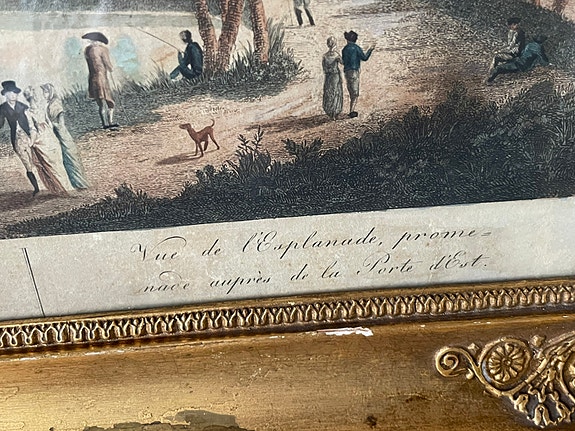 Vue de l'Esplanade, prome=
nade auprès de la Porte d'Est.